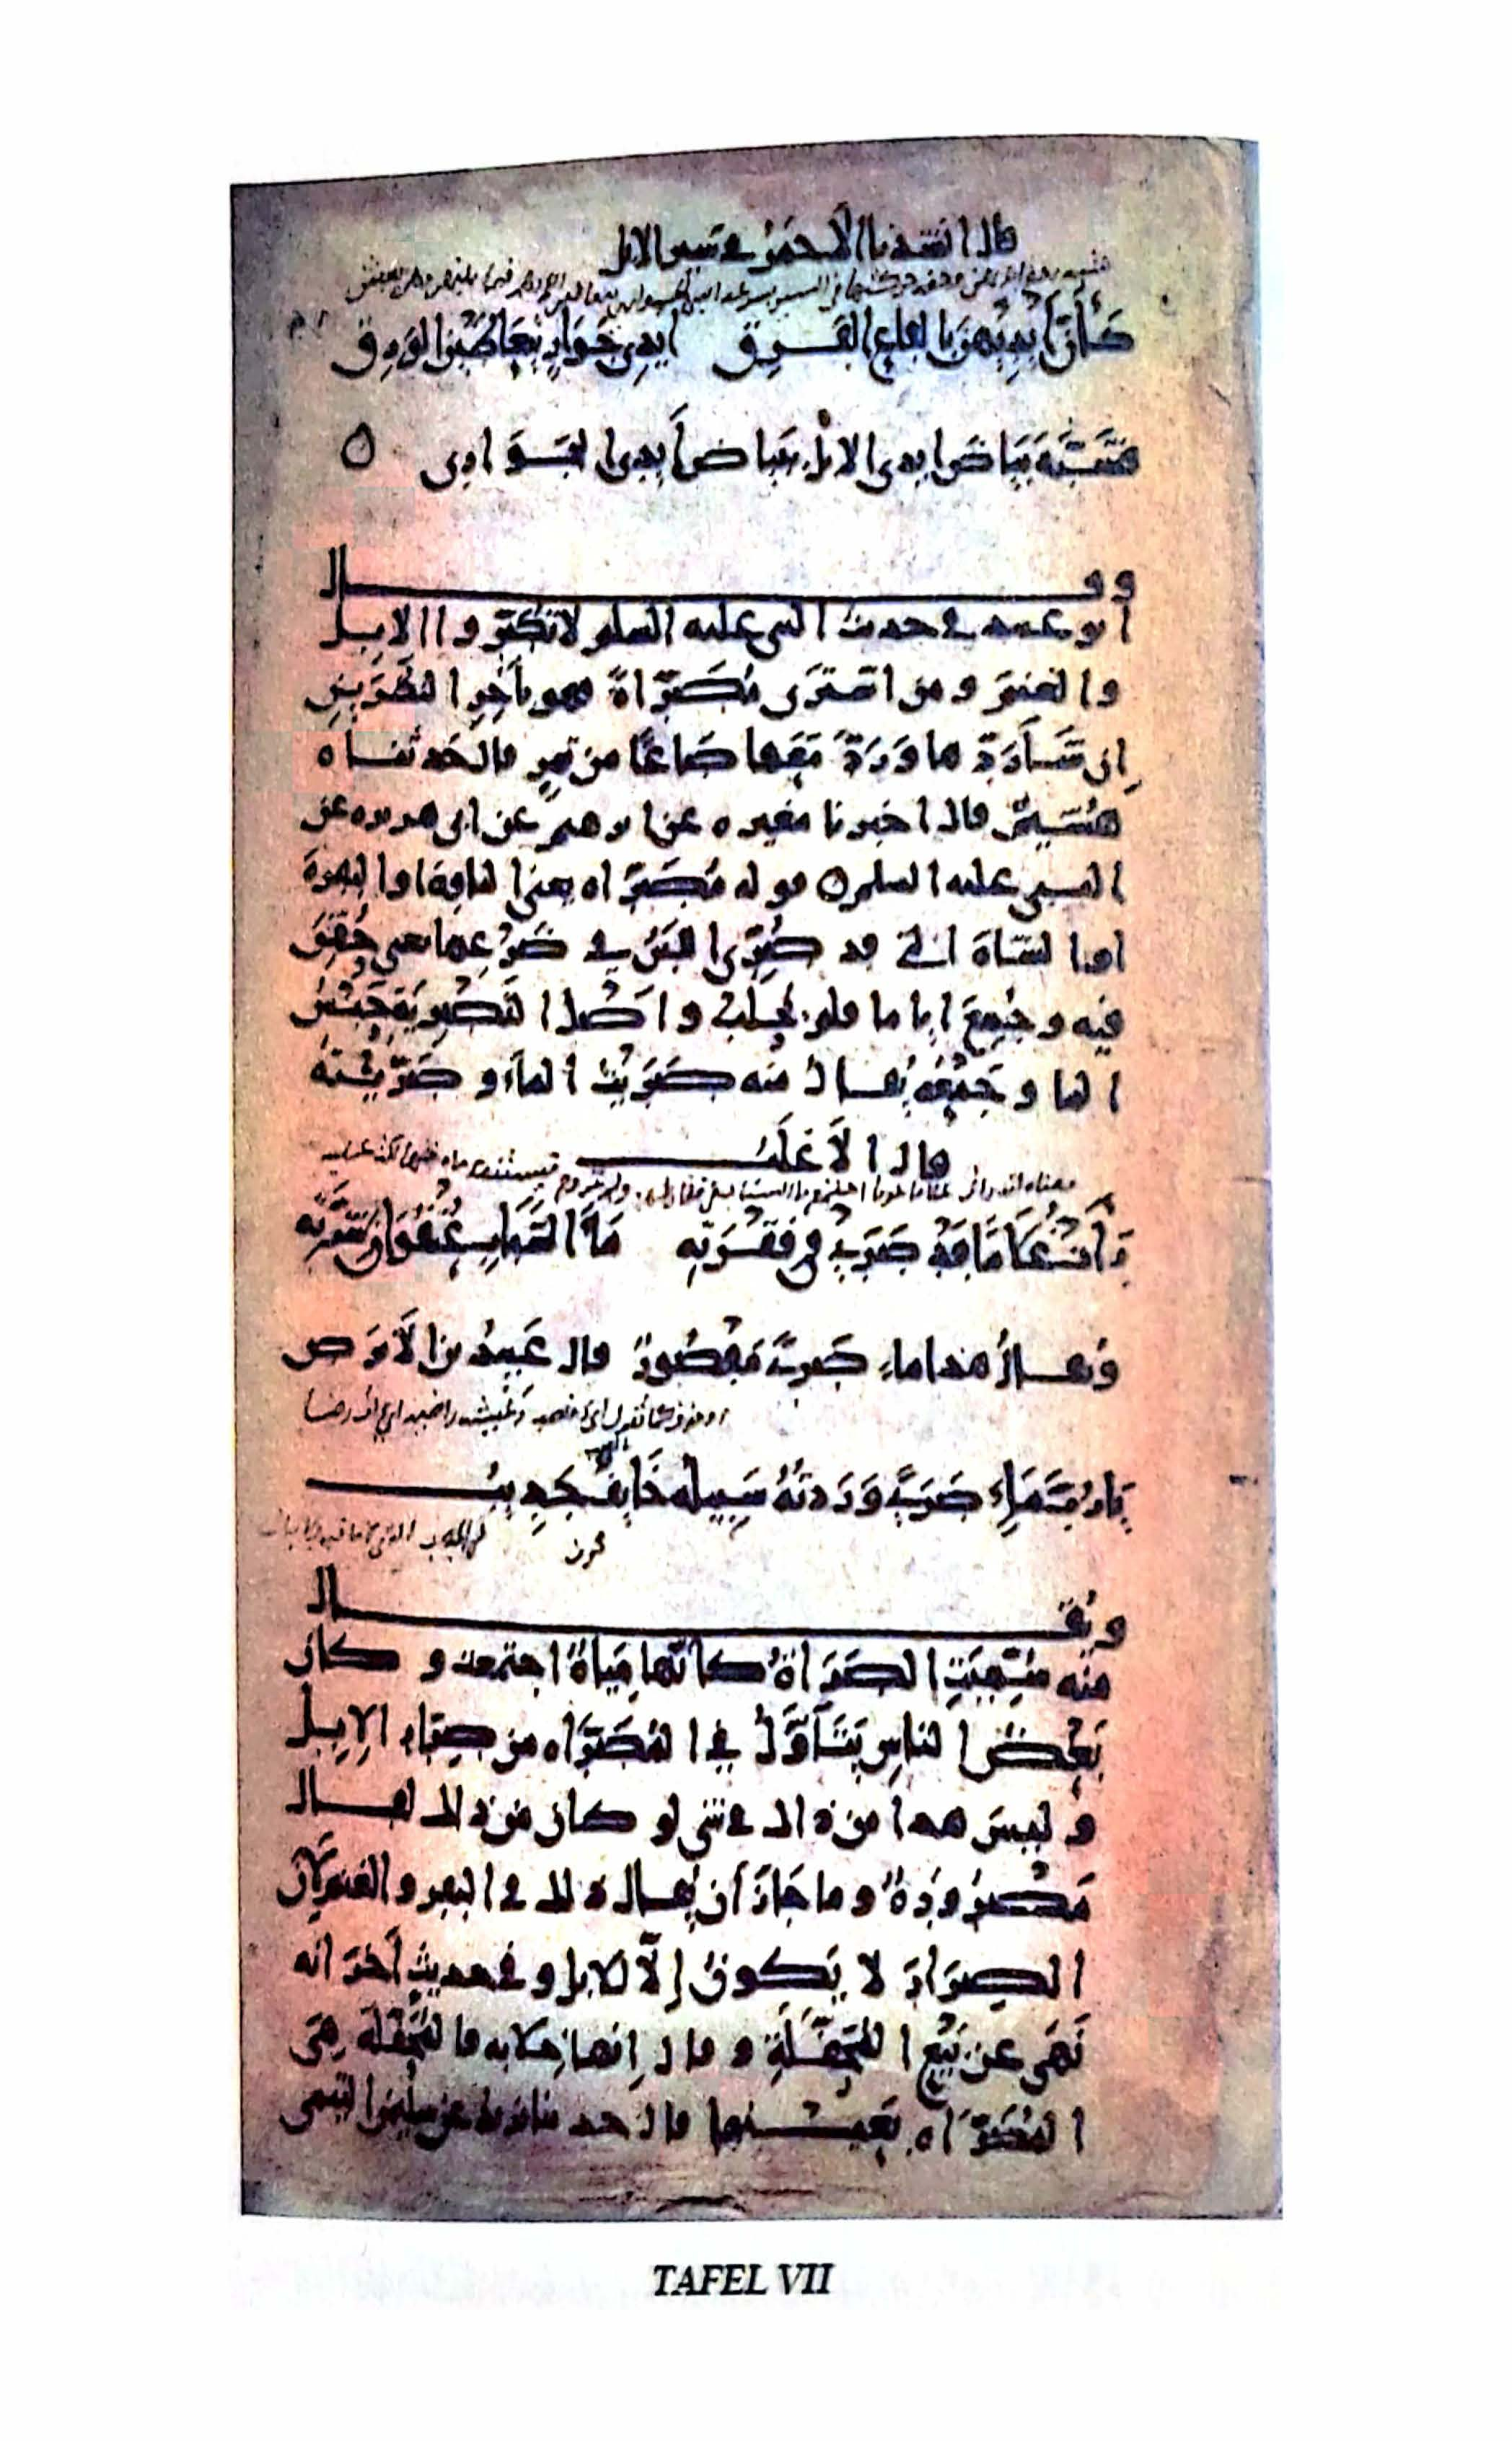 قال انشدنا الأحمرُ في سير الابل
كَأَنَّ أَيْدِيْهِنَّ بِالْقَاعِ الْقَرِق    أيدِي جَوَارٍ يَتَعَاطَيْنَ الوَرِق
فشبَّه بياض ايدي الابل ببياض أيدي الجَوَاري ه
وقال
ابو عبيد في حديث النبي عليه السلم لا تُصَرُّوا الابل
والغنم ومن اشترى مُصَرَّاةً فهو بآخِرِ النَّظَرَيْنِ
اِن شَاءَ رَدَّها وَرَدَّ مَعَها صَاعًا من تمرٍ قال حَدثناه
هُشَيمٌ قال اخبرنا مغيره عن ابرهيم عن ابي هريره عن
النبي عليه السلم ه قوله مُصَرَّاه يعني الناقة او البقرة
او الشاة التي قد صُرِّيَ اللبَنُ في ضَرْعِها يعني حُقِنَ
فيه وجُمِعَ اياما فلم يُحلَبْ واَصْلُ التَّصْرِيَةِ حَبْسُ
الما وجَمْعُه يُقال منه صَرَيْتُ الماءَ وصَرَّيْتُهُ
قال الاَغْلَبُ
رَأَتْ غُلَامًا قَدْ صَرَى في فِقْرَتِهِ    مَاءَ الشَّبَابِ عُنْفُوَانُ شِرَّتِهِ
ويقالُ هذا ماءٌ صَرىً مَقْصُورٌ قال عَبِيدُ بن الأَبرَص
يَارُبَّ مَاءٍ صَرىً وَرَدتُهُ سَبِيلُه خَائِفٌ جَدِيبُ
ويُقال
منه سُمِّيَتِ الصَّرَاةُ كأنّها مِيَاهٌ اجتمعت وكان
بَعْضُ الناسِ يَتَأَوَّلُ في المُصَرَّاه من صِرَارِ الاِبِل
وليسَ هذا من ذلك في شي لو كان من ذلك لقال
مَصْرُورَةٌ وما جَازَ أن يُقال ذلك في البقر والغنم لِأنّ
الصِرَارَ لا يَكونُ اِلّا للابل وفي حديثٍ آخَرَ انه
نَهَى عن بَيْعِ المُحَفَّلَةِ وقال اِنها خِلابه فالمُحَفَّلَة هِيَ
المُصَرَّاه بِعَيْنِها قال حدثنا يزيد عن سليمن التيمي
TAFEL VII